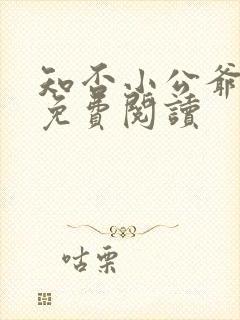 知否小公爺
免費閱讀
咕栗